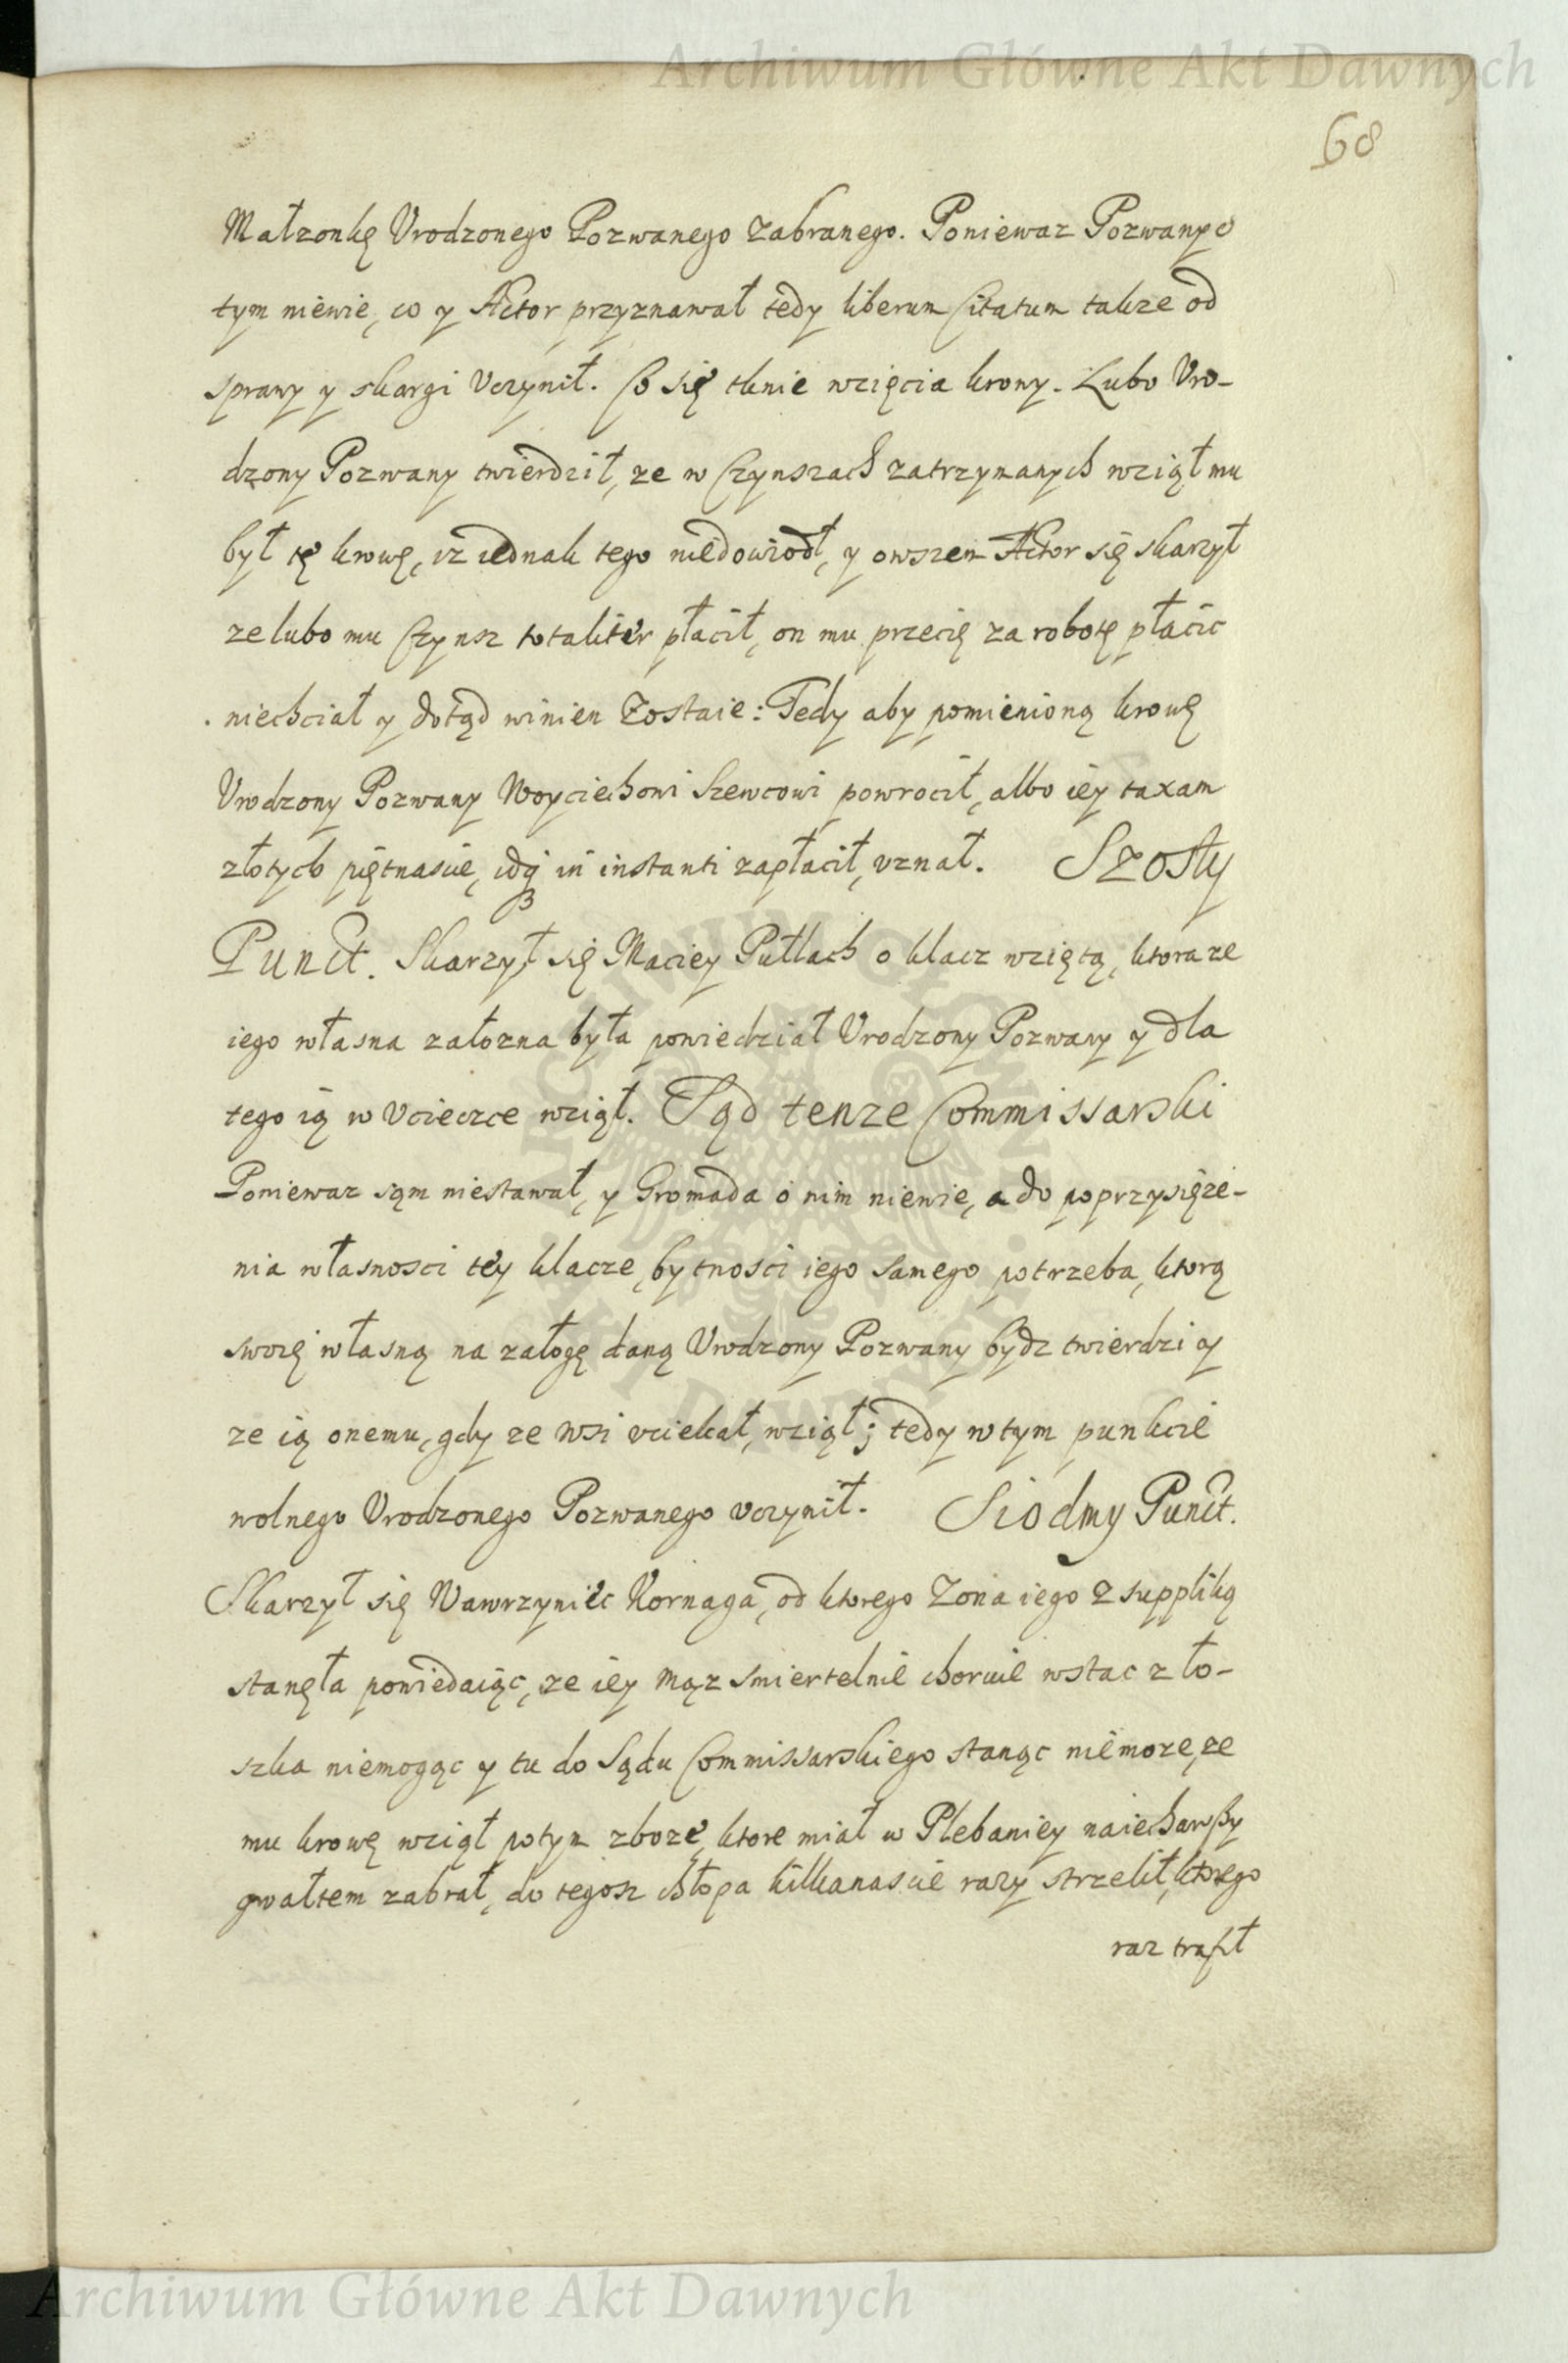 Archiwum Główne Akt Dawnych
68
Małzonkę Vrodzonego Pozwanego zabranego. Poniewaz Pozwany o
tym niewie, co y Actor przyznawał tedy liberum Citatum takze od
sprawy y skargi Vczynił. Co się tknie wzięcia krowy. Lubo Vro-
dzony Pozwany twierdził, ze w Czynszach zatrzymanych wziął mu
był tę krowę, iz iednak tego niedowiodł, y owszem Actor się skarzył
ze lubo mu Czynsz totaliter płacił, on mu przecię za robotę płacic
niechciał y dotąd winien zostaie: Tedy aby pomienioną krowę
Vrodzony Pozwany Woyciechowi Szewcowi powrocił, albo iey taxam
złotych piętnascie, idq in instanti zapłacił, vznał. Szosty
Punct. Skarzył się Maciey Putlach o klacz wziętą, ktora ze
iego własna załozna była powiedział Vrodzony Pozwany y dla
tego ią w Vcieczce wziął. Sąd tenze Commissarski
Poniewaz sąm niestawał, y Gromada o nim niewie, a do poprzysięze-
nia własnosci tey klacze, bytnosci iego samego potrzeba, ktorą
swoię własną na załogę daną Vrodzony Pozwany bydz twierdzi y
ze ią onemu, gdy ze wsi vciekał, wziął; tedy w tym punkcie
wolnego Vrodzonego Pozwanego vczynił. Siodmy Punct.
Skarzył się Wawrzyniec Kornaga, od ktorego Zona iego z suppliką
stanęła powiedaiąc, ze iey Mąz smiertelnie choruie wstac z ło-
szka niemogąc y tu do Sądu Commissarskiego stanąc niemoze, ze
mu krowę wziął potym zboze, ktore miał w Plebaniey naiechawszy
gwałtem zabrał, do tegosz chłopa kilkanascie razy strzelił, ktorego
raz trafił
Archiwum Główne Akt Dawnych